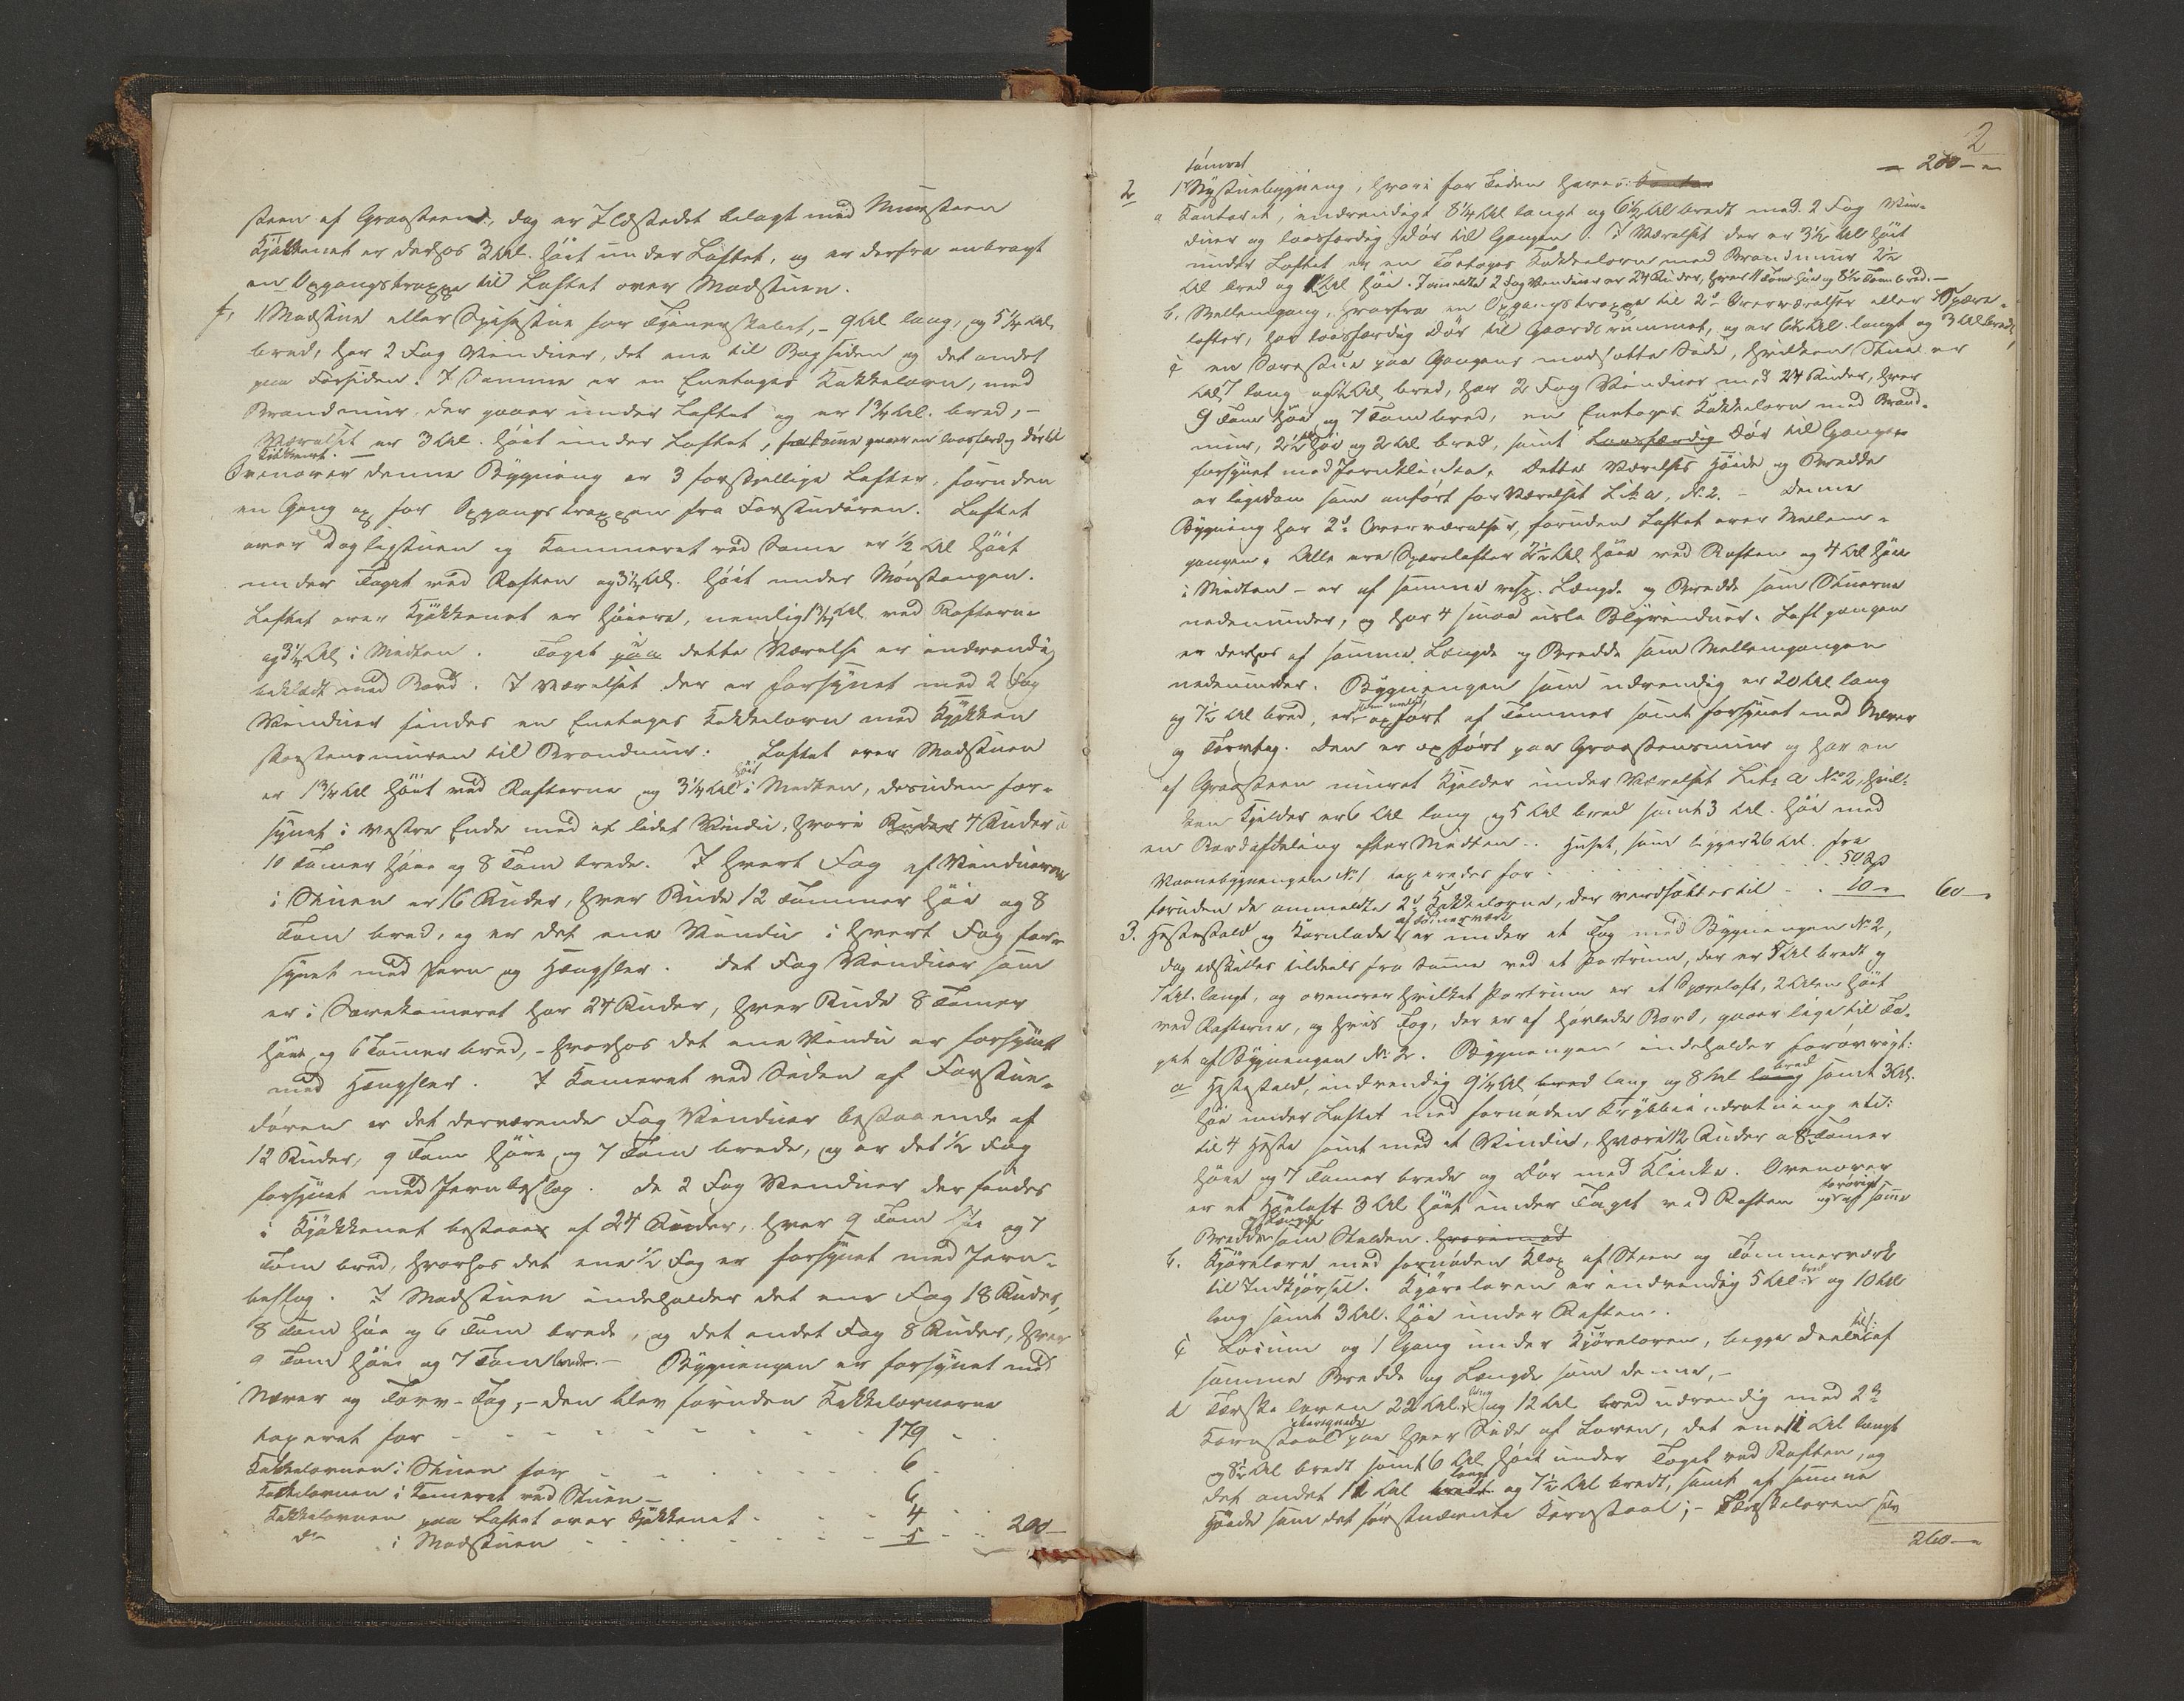 steen af Graasteen, dog er Ildstedet belagt med Muursteen
Kjøkkenet er derhos 3 Al. høit under Loftet, og er derfra anbragt
en Opgangstrappe til Loftet over Madstuen.
f, 1 Madstue eller Spisestue for Tjenerskabet, – 9 Al lang, og 5 1/4 Al.
bred, har 2 Fag Vinduer, det ene til Bagsiden og det andet
paa Forsiden. I Samme er en Eenetages Kakkelovn, med
Brandmuur, der gaaer under Loftet og er 1 3/4 Al. bred, –
Værelset er 3 Al. høit under Loftet, fra samme gaaer en laasfærdig dør til
Kjøkkenet. –
Ovenover denne Bygning er 3 forskjellige Lofter, foruden
en Gang op for Opgangstrappen fra Forstuedøren. Loftet
over Dagligstuen og Kammeret ved Samme er 1/2 Al høit
under Taget ved Raften og 3 1/2 Al. høit under Mønsaasen.
Loftet over Kjøkkenet er høiere, nemlig 1 3/4 Al ved Rafterne
og 3 1/4 Al i Midten. Taget paa i dette Værelse er indvendig
beklædt med Bord. I Værelset der er forsynet med 2 Fag
Vinduer findes en Eenetages Kakkelovn med Kjøkken
skorsteensmuren til Brandmuur. Loftet over Madstuen
er 1 3/4 Al høit ved Rafterne og 3 1/4 Al høit i Midten, desuden for-
synet i vestre Ende med et lidet Vindue, hvori Ruder 4 Ruder a
10 Tommer høie og 8 Tom brede. I hvert Fag af Vinduerne
i Stuen er 16 Ruder, hver Rude 12 Tommer høi og 8
Tom bred, og er det ene Vindue i hvert Fag for-
synet med Jern og Hængsler. Det Fag Vinduer som
er i Sovekameret har 24 Ruder, hver Rude 8 Tomer
høi og 6 Tomer bred, – hvorhos det ene Vindue er forsynet
med Hængsler. I Kameret ved Siden af Forstue-
døren er det derværende Fag Vinduer bestaaende af
12 Ruder, 9 Tom høie og 7 Tom brede, og er det 1/2 Fag
forsynet med Jernbeslag. De 2 Fag Vinduer der findes
i Kjøkkenet bestaaer af 24 Ruder, hver 9 Tom høi og 7
Tom bred, hvorhos det ene 1/2 Fag er forsynet med Jern-
beslag. I Madstuen indeholder det ene Fag 18 Ruder,
8 Tom høie og 6 Tom brede, og det andet Fag 8 Ruder, hver
9 Tom høi og 7 Tom bred. – Bygningen er forsynet med
Næver og Torv-Tag, – den blev foruden Kakkelovnerne
taxeret for - - - 179 -
Kakkelovnen i Stuen for - - - 6
Kakkelovnen i Kameret ved Stuen – 6
Kakkelovnen paa Loftet over Kjøkkenet - - - 4
do i Madstuen - - - 5 - - 200 –
2
– 200 – –
tømret
2 1 Nystuebygning, hvori for Tiden haves: Kontor
a Kontoret, indvendigt 8 1/4 Al langt og 6 1/2 Al bredt med 2 Fag Vin-
duer og laasfærdig Dør til Gangen. I Værelset der er 3 1/2 Al høit
under Loftet er en Toetages Kakkelovn med Brandmuur 2 1/2
Al bred og Al høi. I anmeldte 2 Fag Vinduer er 24 Ruder, hver 11 Tom høi og 8 1/2 Tom bred. –
b, Mellemgang, hvorfra en Opgangstrappe til 2de Overværelser eller Spære-
lofter, har laasfærdig Dør til Gaardsrummet, og er 6 1/2 Al. langt og 3 Al bredt,
c en Dørestue paa Gangens modsatte Side, hvilken Stue er
Al 7 lang og Al bred, har 2 Fag Vinduer med 24 Ruder, hver
9 Tom høi og 7 Tom bred, en Eenetages Kakkelovn med Brand-
muur, 2 1/2 Al høi og 2 Al. bred, samt laasfærdig Dør til Gangen
forsynet med Jernklinke. Dette Værelses Høide og Bredde
er ligedan som anført for Værelset Litr. a, No 2. – Denne
Bygning har 2de Overværelser, foruden Loftet over Mellem-
gangen. Alle ere Spærelofter Al høie ved Raften og 4 Al høie
i Midten – er af samme resp. Længde og Bredde som Stuerne
nedenunder, og har 4 smaa usle Blyvinduer. Loftgangen
er derhos af samme Længde og Bredde som Mellemgangen
nedenunder. Bygningen som udvendig er 20 Al lang
og 7 1/2 Al bred, er som meldt opført af Tømmer samt forsynet med Næver
og Torvtag. Den er opført paa Graasteensmuur og har en
af Graasteen muret Kjelder under Værelset Litr a No 2, hvil-
ken Kjelder er 6 Al lang og 5 Al bred samt 3 Al. høi med
en Bordafdeling efter Midten. Huset, som ligger 26 Al. fra
Vaanebygningen No 1 taxeredes for - - - 50 Spd
foruden de anmeldte 2de Kakkelovne, der værdsattes til - - 10 – 60 –
3. Hestestald og Kornlade af Tømmerværk er under et Tag med Bygningen No 2,
dog adskilles tildeels fra Samme ved et Portrum, der er 5 Al bredt og
7 Al. langt, og ovenover hvilket Portrum er et Spæreloft, 2 Alen høit
ved Rafterne, og hvis Tag, der er af høvlede Bord, gaaer lige til Ta-
get af Bygningen No 2. Bygningen indeholder forøvrigt:
a Hestestald, indvendig 9 1/4 Al bred lang og 8 Al lang bred samt 3 Al.
høi under Loftet med fornøden Krybbeindretning etc:
til 4 Heste samt med et Vindue, hvori 12 Ruder a 8 1/2 Tomer
høie og 7 Tomer brede og Dør med Klinke. Ovenover
er et Høeloft 3 Al høit under Taget ved Raften og forøvrigt af samme
Bredde og Længde som Stalden. Hvorimod
b. Kjørelove med fornøden Klop af Steen og Tømmerværk
til Indkjørsel. Kjøreloven er indvendig 5 Al bred og 10 Al
lang samt 3 Al. høi under Raften.
c Locum og 1 Gang under Kjøreloven, begge deele af
samme Bredde og Længde som denne, –
d Tærskeloven 22 Al. lang og 12 Al bred udvendig med 2de
Kornstaal paa hver Side af Loven, det ene 11 Al langt
og 8 1/2 Al bredt samt 6 Al høit under Taget ved Raften, og
det andet 11 Al bredt langt og 7 1/2 Al bredt, samt af samme
Høide som det førstnævnte Kornstaal; – Tærskeloven selv
260 –